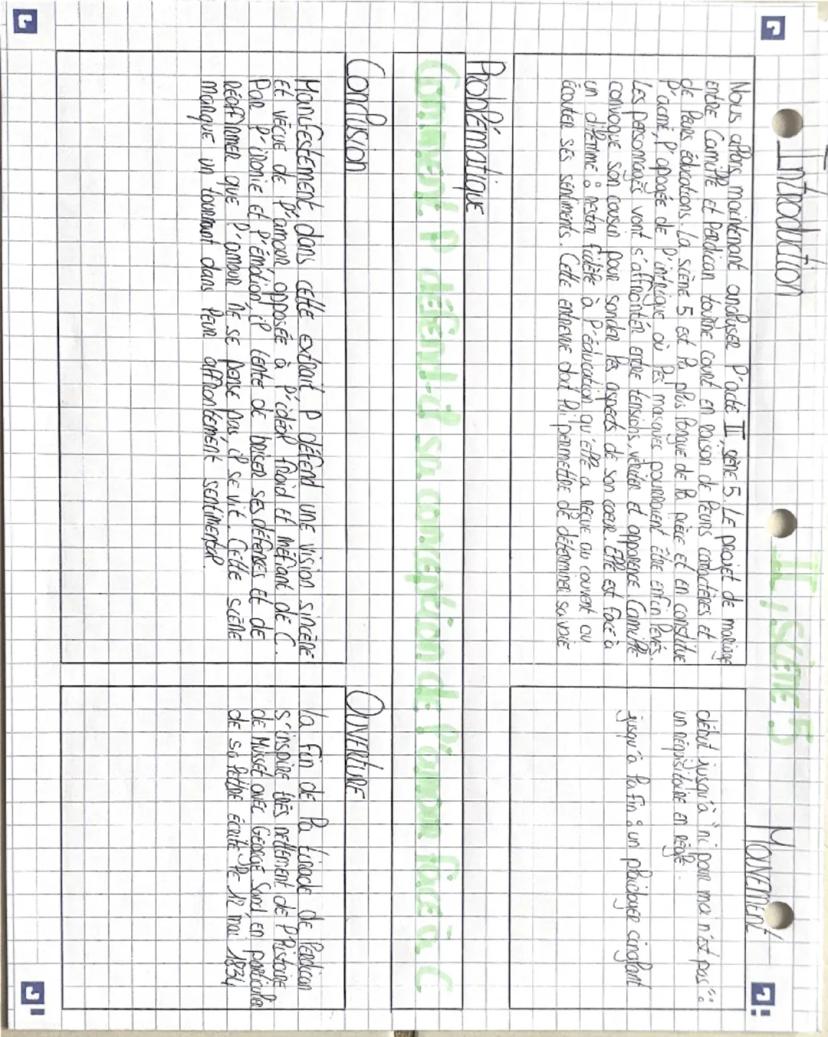 II, SCÈNE 5
Introduction
Nous allons maintenant analyser l'acte II, scène 5. Le projet de mariage
entre Camille et Perdican tourne court en raison de leurs caractères et
de leurs éducations. La scène 5 est la plus longue de la pièce et en constitue
l'acmé, l'apogée de l'intrigue où les masques pourraient être enfin levés.
Les personnages vont s'affronter entre tensions, vériter et apparence. Camille
convoque son cousin pour sonder les aspects de son coeur. Elle est face à
un dilemme : rester fidèle à l'éducation qu'elle a reçue au couvent ou
écouter ses sentiments. Cette entrevue doit lui permettre de déterminer sa voie
Mouvement
début jusqu'à "ni pour moi n'est pas" :
un réquisitoire en règle.
jusqu'à la fin : un plaidoyer cinglant
Problématique
Comment P défend-il sa conception de l'amour face à C
Conclusion
Manifestement, dans cette extrait P défend une vision sincère
et vécue de l'amour opposée à l'idéal froid et méfiant de C.
Par l'ironie et l'émotion, il tente de briser ses défenses et de
réaffirmer que l'amour ne se pense pas, il se vit. Cette scène
marque un tournant dans leur affrontement sentimental.
Ouverture
La fin de la tirade de Perdican
s'inspire très nettement de l'histoire
de Musset avec George Sand, en particulier
de sa lettre écrite le 12 mai 1834